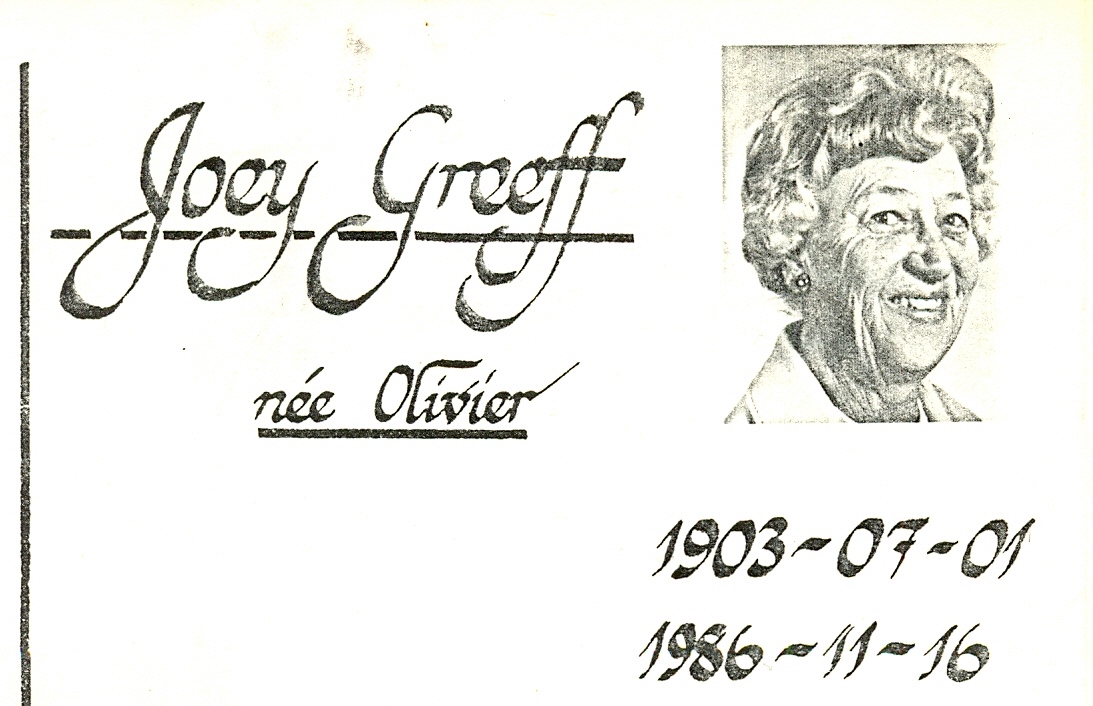 Joey Greeff
née Olivier
1903-07-01
1986-11-16